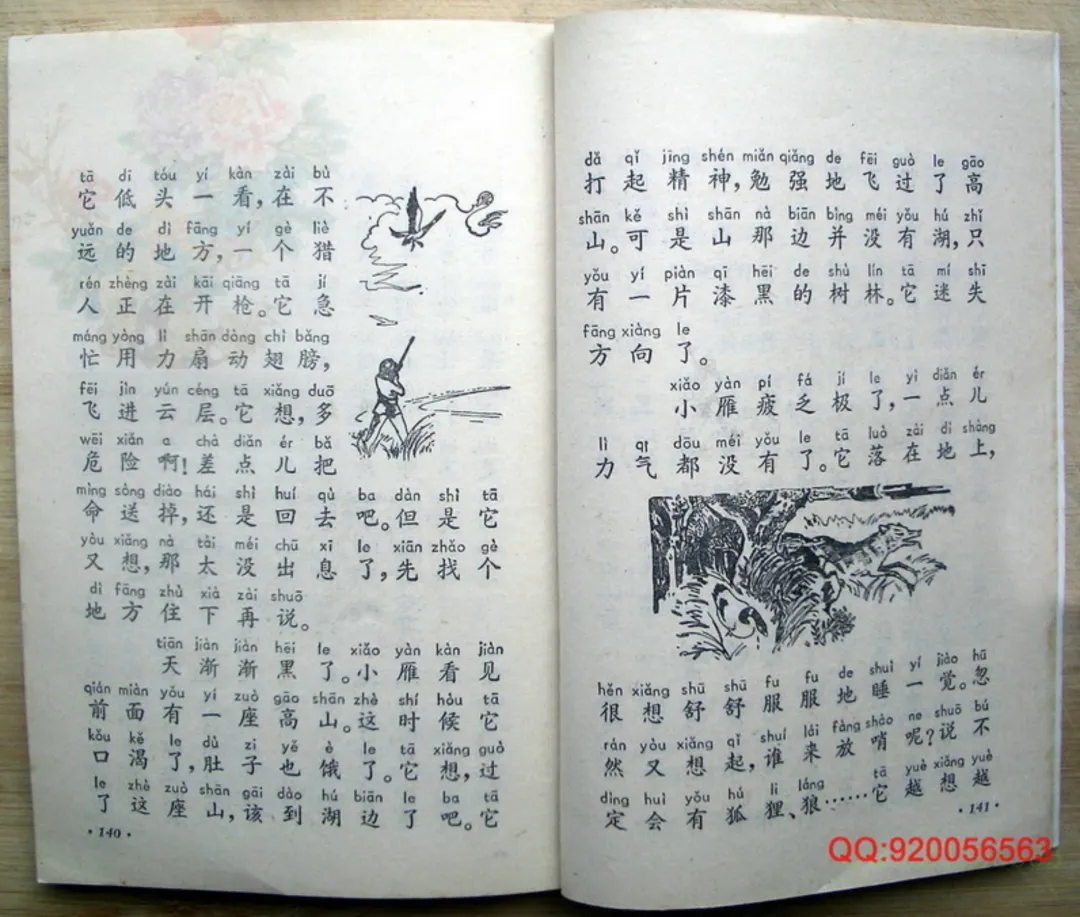 tā dī tóu yí kàn zài bù
它低头一看,在不
yuǎn de dì fāng yí gè liè
远的地方,一个猎
rén zhèng zài kāi qiāng tā jí
人正在开枪。它急
máng yòng lì shān dòng chì bǎng
忙用力扇动翅膀,
fēi jìn yún céng tā xiǎng duō
飞进云层。它想,多
wēi xiǎn a chà diǎn ér bǎ
危险啊!差点儿把
mìng sòng diào hái shì huí qù ba dàn shì tā
命送掉,还是回去吧。但是它
yòu xiǎng nà tài méi chū xī le xiān zhǎo gè
又想,那太没出息了,先找个
dì fāng zhù xià zài shuō
地方住下再说。
tiān jiàn jiàn hēi le xiǎo yàn kàn jiàn
天渐渐黑了。小雁看见
qián miàn yǒu yí zuò gāo shān zhè shí hòu tā
前面有一座高山。这时候它
kǒu kě le dù zi yě è le tā xiǎng guò
口渴了,肚子也饿了。它想,过
le zhè zuò shān gāi dào hú biān le ba tā
了这座山,该到湖边了吧。它
·140·
dǎ qǐ jīng shén miǎn qiǎng de fēi guò le gāo
打起精神,勉强地飞过了高
shān kě shì shān nà biān bìng méi yǒu hú zhǐ
山。可是山那边并没有湖,只
yǒu yí piàn qī hēi de shù lín tā mí shī
有一片漆黑的树林。它迷失
fāng xiàng le
方向了。
xiǎo yàn pí fá jí le yì diǎn ér
小雁疲乏极了,一点儿
lì qì dōu méi yǒu le tā luò zài dì shàng
力气都没有了。它落在地上,
hěn xiǎng shū shū fu fu de shuì yí jiào hū
很想舒舒服服地睡一觉。忽
rán yòu xiǎng qǐ shuí lái fàng shào ne shuō bú
然又想起,谁来放哨呢?说不
dìng huì yǒu hú li láng tā yuè xiǎng yuè
定会有狐狸、狼……它越想越
·141·
QQ:920056563